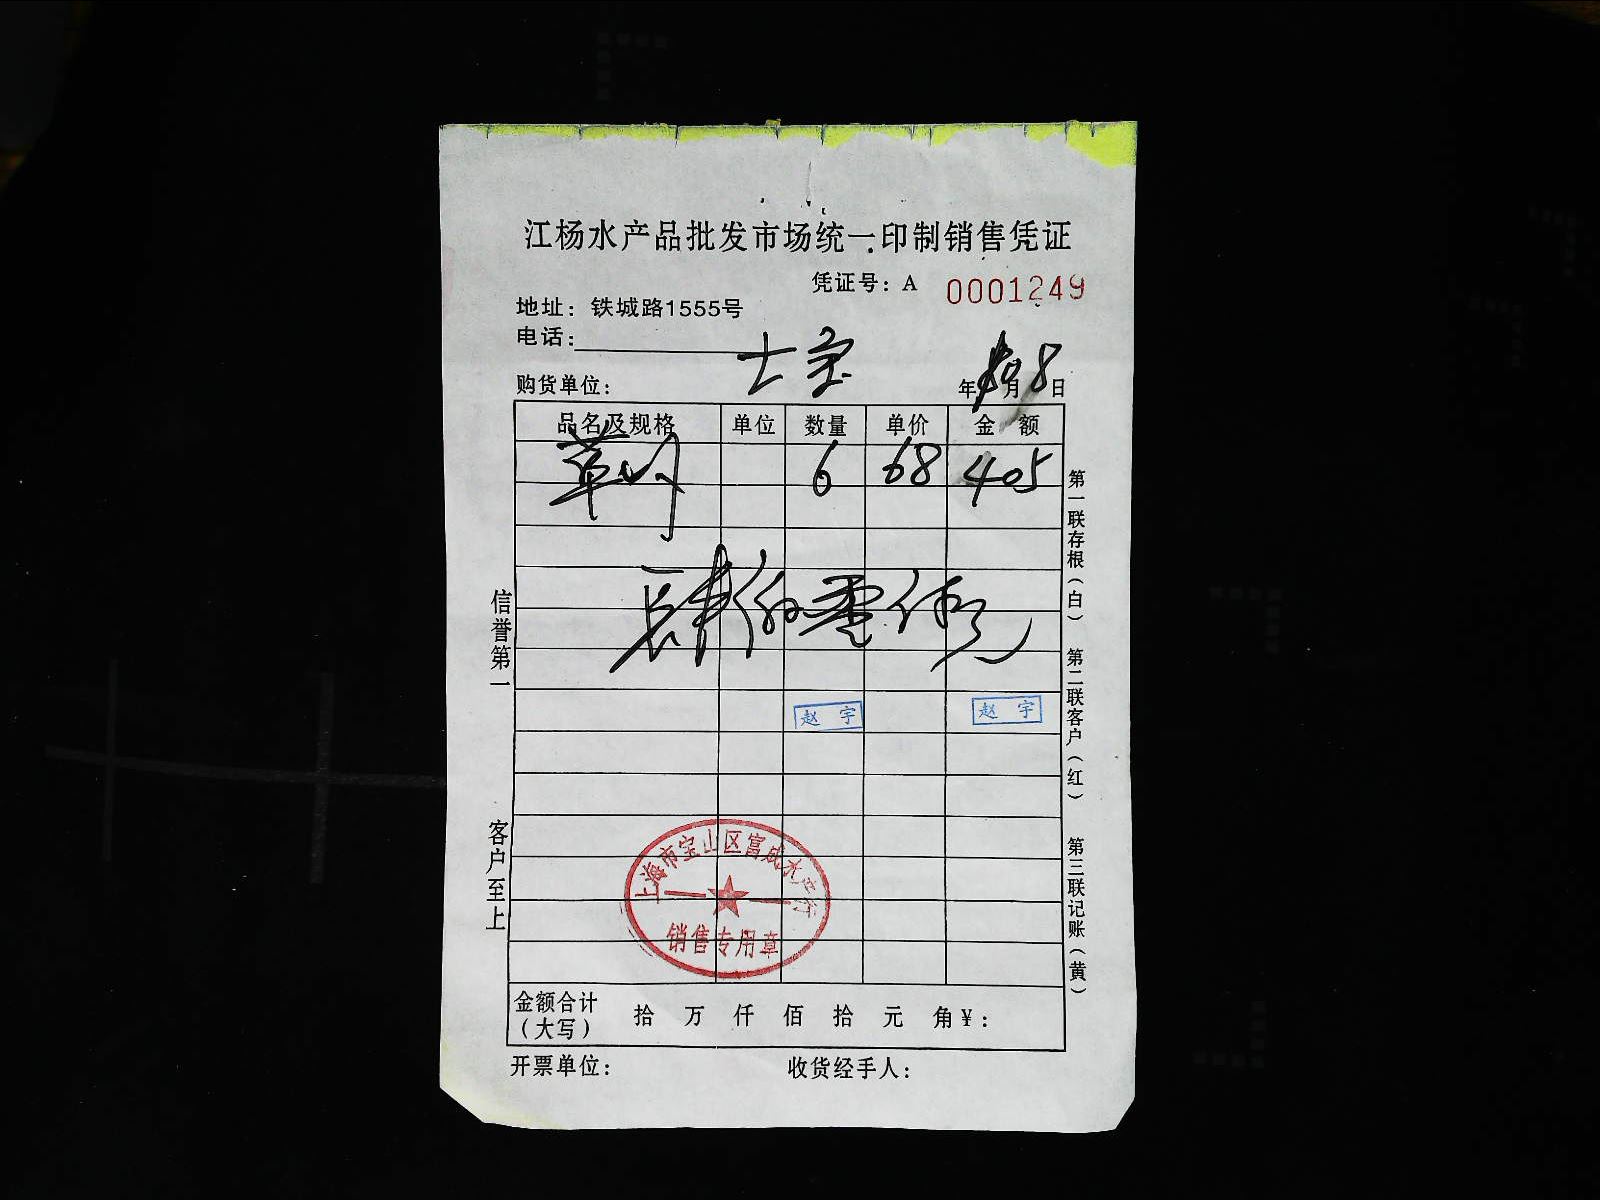 江杨水产品批发市场统一印制销售凭证
凭证号：A 0001249
地址：铁城路1555号
电话：
购货单位： 年 月 8 日
品名及规格 单位 数量 单价 金 额
6 68 405
肆佰零伍元
赵 宇 赵 宇
上海市宝山区富成水产行
销售专用章
金额合计（大写） 拾 万 仟 佰 拾 元 角 ¥：
开票单位： 收货经手人：
信誉第一 客户至上
第一联存根（白） 第二联客户（红） 第三联记账（黄）